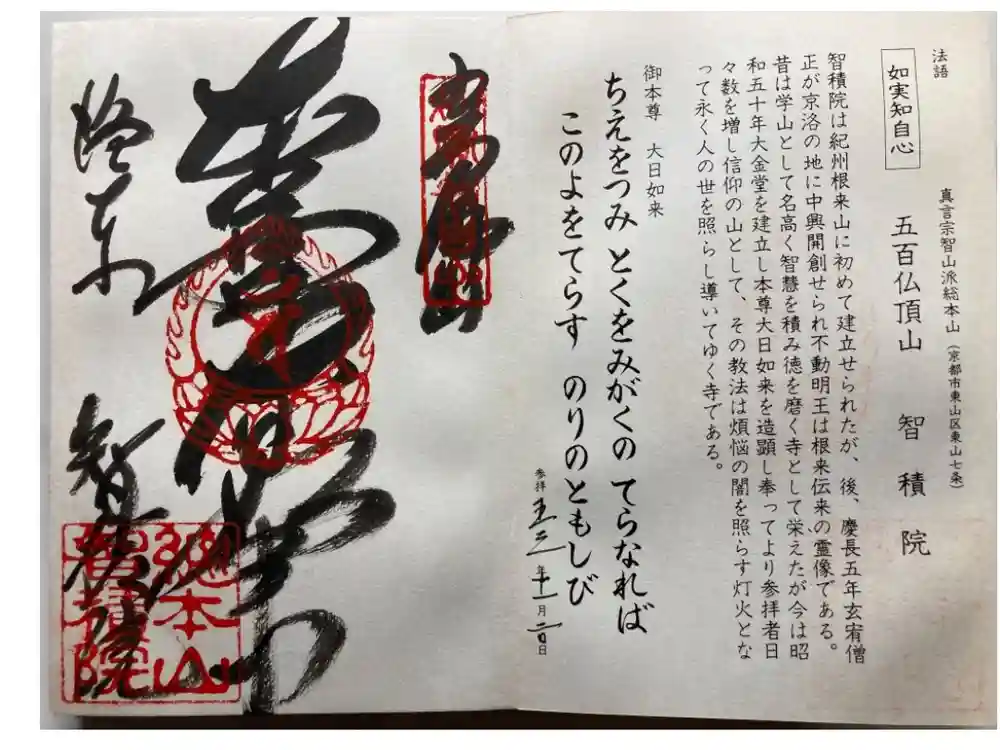 法語
真言宗智山派総本山（京都市東山区東山七条）
如実知自心　五百仏頂山　智積院
智積院は紀州根来山に初めて建立せられたが、後、慶長五年玄宥僧
正が京洛の地に中興開創せられ不動明王は根来伝来の霊像である。
昔は学山として名高く智慧を積み徳を磨く寺として栄えたが今は昭
和五十年大金堂を建立し本尊大日如来を造顕し奉ってより参拝者日
々数を増し信仰の山として、その教法は煩悩の闇を照らす灯火とな
って永く人の世を照らし導いてゆく寺である。
御本尊　大日如来
ちえをつみ　とくをみがくの　てらなれば
このよをてらす　のりのともしび
参拝　五三年十一月 日
洛東　智積院
總本山
智積院